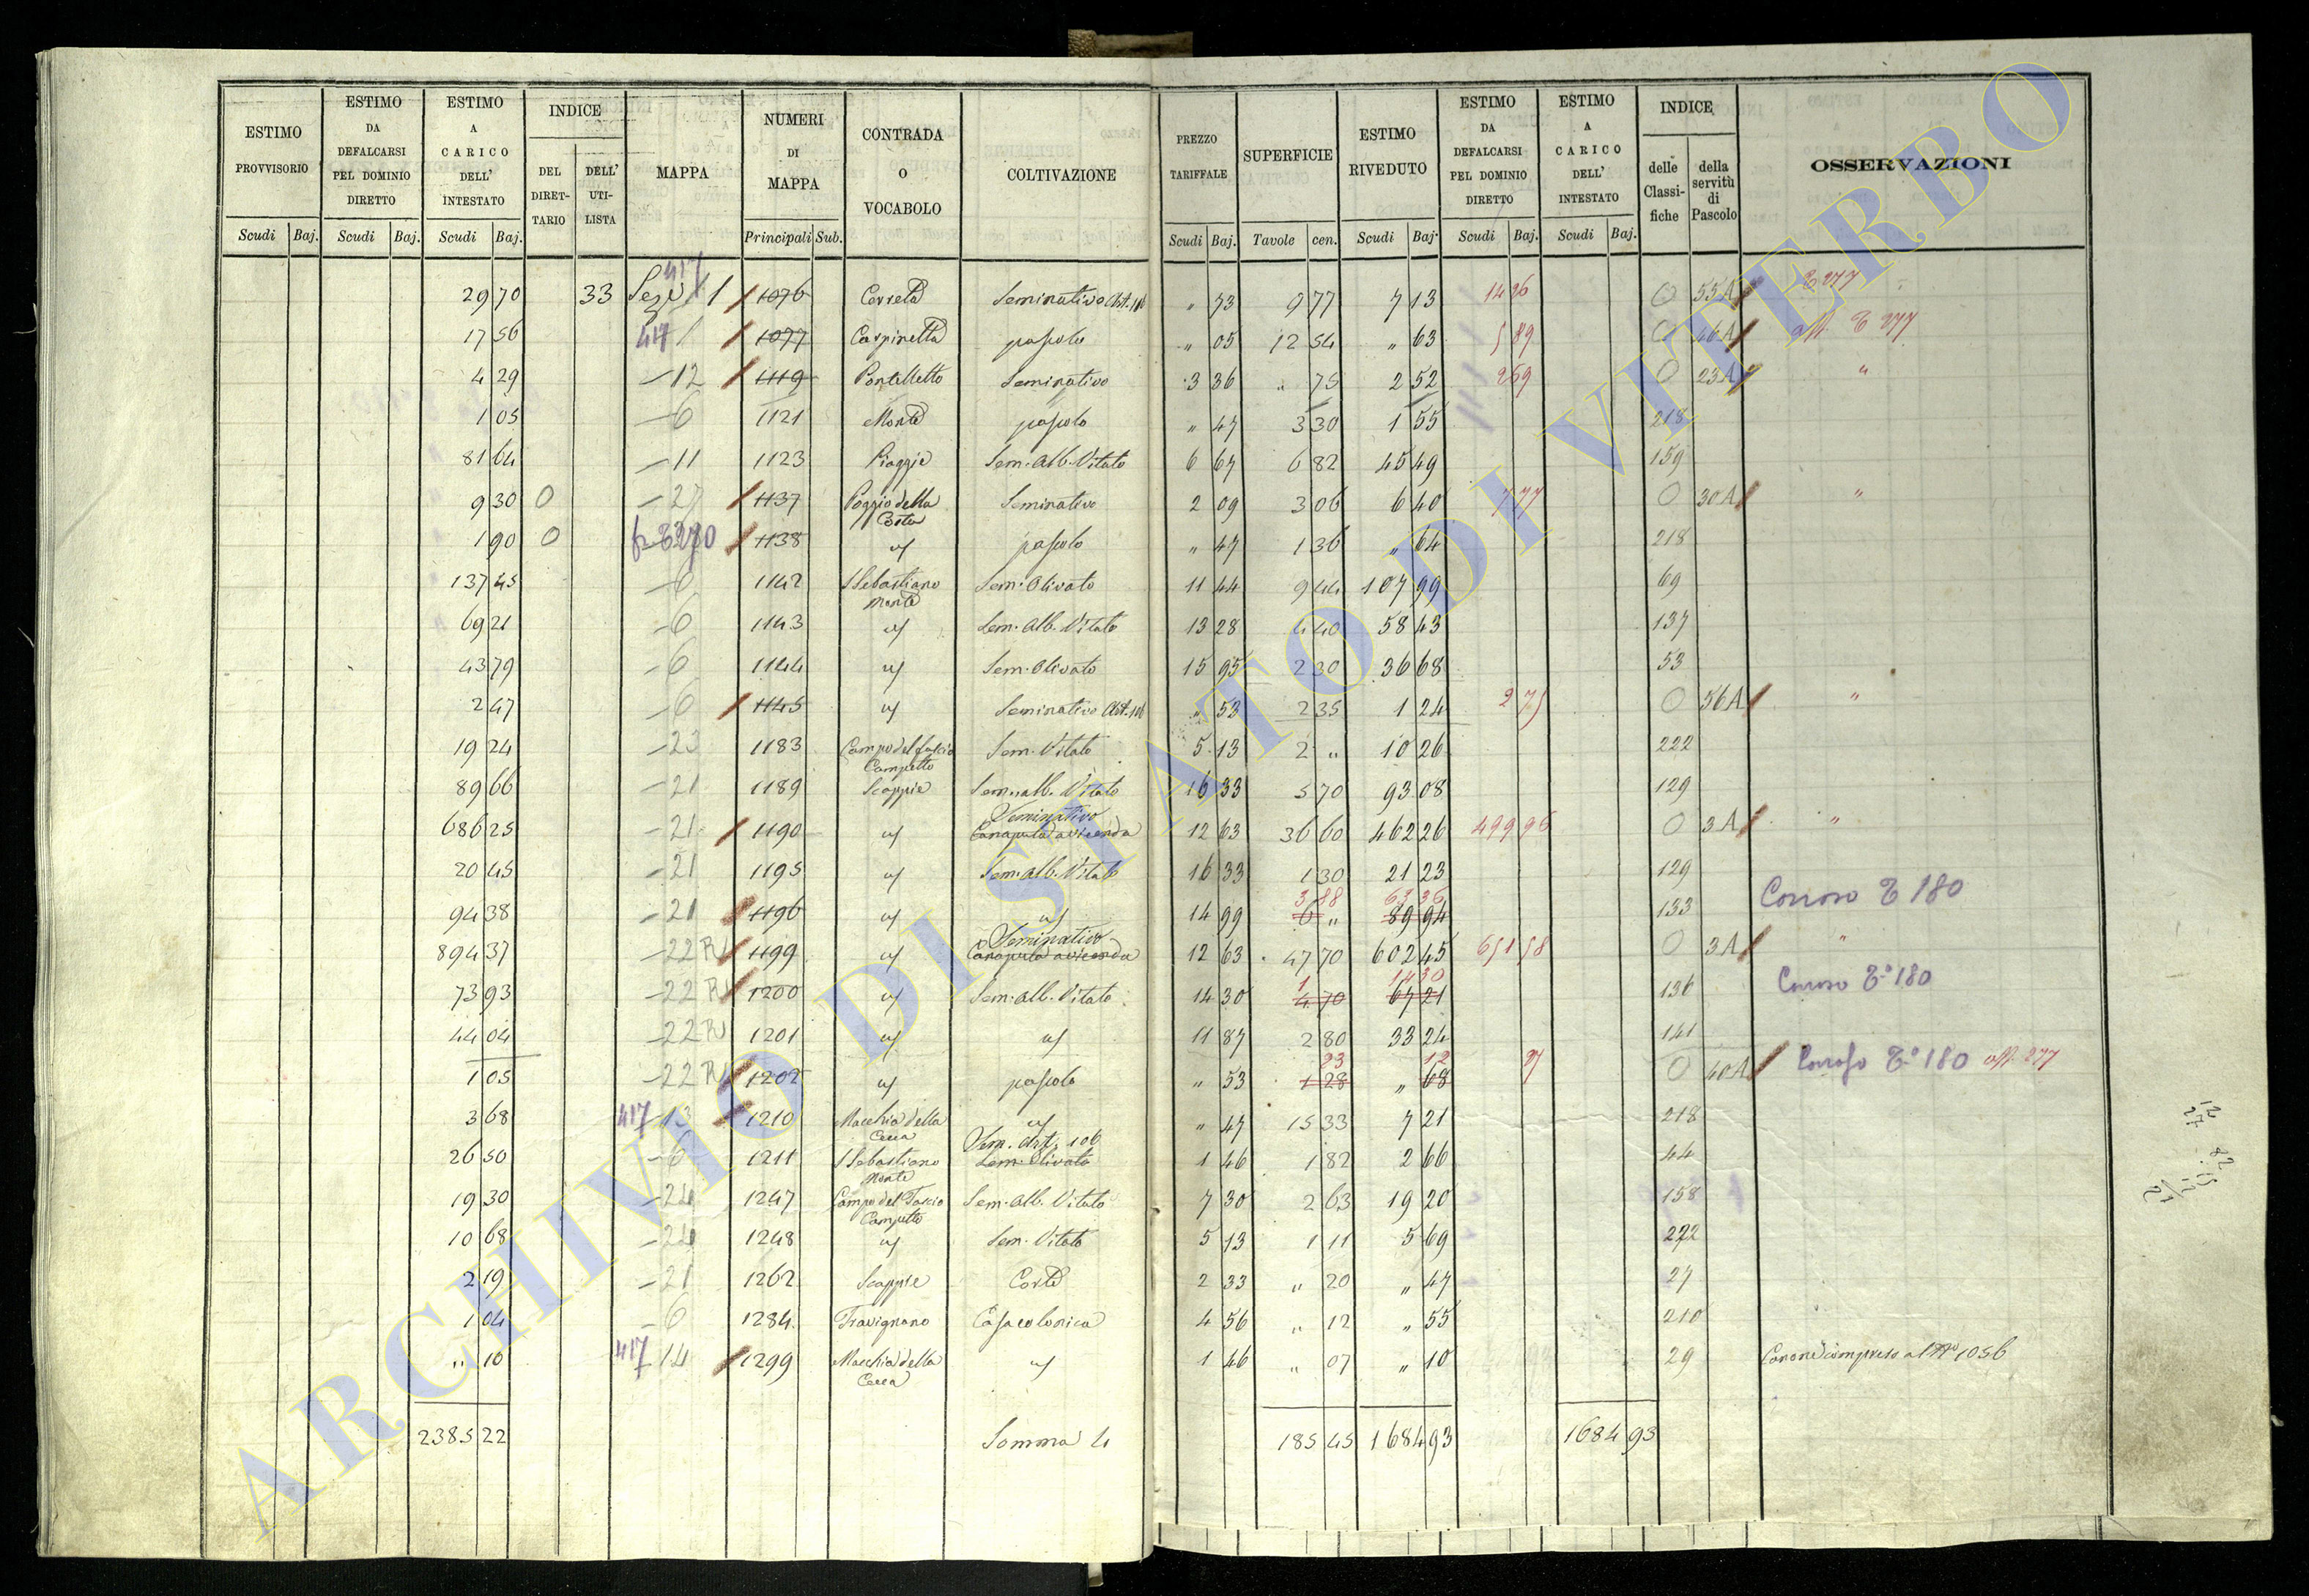 ESTIMO PROVVISORIO | ESTIMO DA DEFALCARSI PEL DOMINIO DIRETTO | ESTIMO A CARICO DELL' INTESTATO | INDICE DEL DIRETTARIO | DELL' UTILISTA | MAPPA | NUMERI DI MAPPA | CONTRADA O VOCABOLO | COLTIVAZIONE | PREZZO TARIFFALE | SUPERFICIE | ESTIMO RIVEDUTO | ESTIMO DA DEFALCARSI PEL DOMINIO DIRETTO | ESTIMO A CARICO DELL' INTESTATO | INDICE delle Classifiche | della servitù di Pascolo | OSSERVAZIONI
Scudi | Baj. | Scudi | Baj. | Scudi | Baj. | Principali | Sub. | Scudi | Baj. | Tavole | cen. | Scudi | Baj. | Scudi | Baj. | Scudi | Baj.
29 70 | 33 | 417 1 | 1076 | Cerreta | Seminativo Art. 106 | " 73 | 9 77 | 7 13 | 14 26 | 0 | 55A | T 277
17 56 | 417 1 | 1077 | Carpinetta | pascolo | " 05 | 12 54 | " 63 | 5 89 | 0 | 46A | aff. T 277
4 29 | 12 | 1119 | Pontelletto | Seminativo | 3 36 | " 75 | 2 52 | 2 59 | 0 | 23A | "
1 05 | 6 | 1121 | Monte | pascolo | " 47 | 3 30 | 1 55 | 218
81 64 | 11 | 1123 | Piaggie | Sem. Alb. Vitato | 6 67 | 6 82 | 45 49 | 159
9 30 | 0 | 27 | 1137 | Poggio della Costa | Seminativo | 2 09 | 3 06 | 6 40 | 7 77 | 0 | 30A | "
1 90 | 0 | 1138 | pascolo | " 47 | 1 36 | " 64 | 218
137 45 | 6 | 1142 | S Sebastiano Monte | Sem. Olivato | 11 44 | 9 44 | 107 99 | 69
69 21 | 6 | 1143 | Sem. Alb. Vitato | 13 28 | 4 40 | 58 43 | 137
43 79 | 6 | 1144 | Sem. Olivato | 15 95 | 2 30 | 36 68 | 53
2 47 | 6 | 1145 | Seminativo Art. 106 | " 53 | 2 35 | 1 24 | 2 75 | 0 | 56A | "
19 24 | 23 | 1183 | Campo del fascio Campetto | Sem. Vitato | 5 13 | 2 " | 10 26 | 222
89 66 | 21 | 1189 | Scappie | Sem. alb. Vitato | 16 33 | 5 70 | 93 08 | 129
686 25 | 21 | 1190 | Seminativo Canapula a vicenda | 12 63 | 36 60 | 462 26 | 499 96 | 0 | 3A | "
20 45 | 21 | 1195 | Sem. Alb. Vitato | 16 33 | 1 30 | 21 23 | 129
94 38 | 21 | 1196 | 14 99 | 6 " | 89 94 | 133 | T 180
894 37 | 22 | 1199 | Seminativo Canapula a vicenda | 12 63 | 47 70 | 602 45 | 651 58 | 0 | 3A | "
73 93 | 22 | 1200 | Sem. Alb. Vitato | 14 30 | 1 4 70 | 14 30 67 21 | 136 | T° 180
44 04 | 22 | 1201 | 11 87 | 2 80 | 33 24 | 141
1 05 | 22 | 1202 | pascolo | " 53 | 23 1 28 | 12 " 68 | 0 | 40A | T° 180 aff. 277
3 68 | 417 13 | 1210 | Macchia della Cerra | " 47 | 15 33 | 7 21 | 218
26 50 | 6 | 1211 | S Sebastiano Monte | Sem. Art. 106 Sem. Olivato | 1 46 | 1 82 | 2 66 | 44
19 30 | 24 | 1247 | Campo del Fascio Campetto | Sem. Alb. Vitato | 7 30 | 2 63 | 19 20 | 158
10 68 | 24 | 1248 | Sem. Vitato | 5 13 | 1 11 | 5 69 | 222
2 19 | 21 | 1262 | Scappie | Corte | 2 33 | " 20 | " 47 | 27
1 04 | 6 | 1284 | Travignano | Casa colonica | 4 56 | " 12 | " 55 | 210
" 10 | 417 14 | 1299 | Macchia della Cerra | 1 46 | " 07 | " 10 | 29 | Canone compreso al N° 1056
2385 22 | Somma | 185 45 | 1684 93 | 1684 93
ARCHIVIO DI STATO DI VITERBO